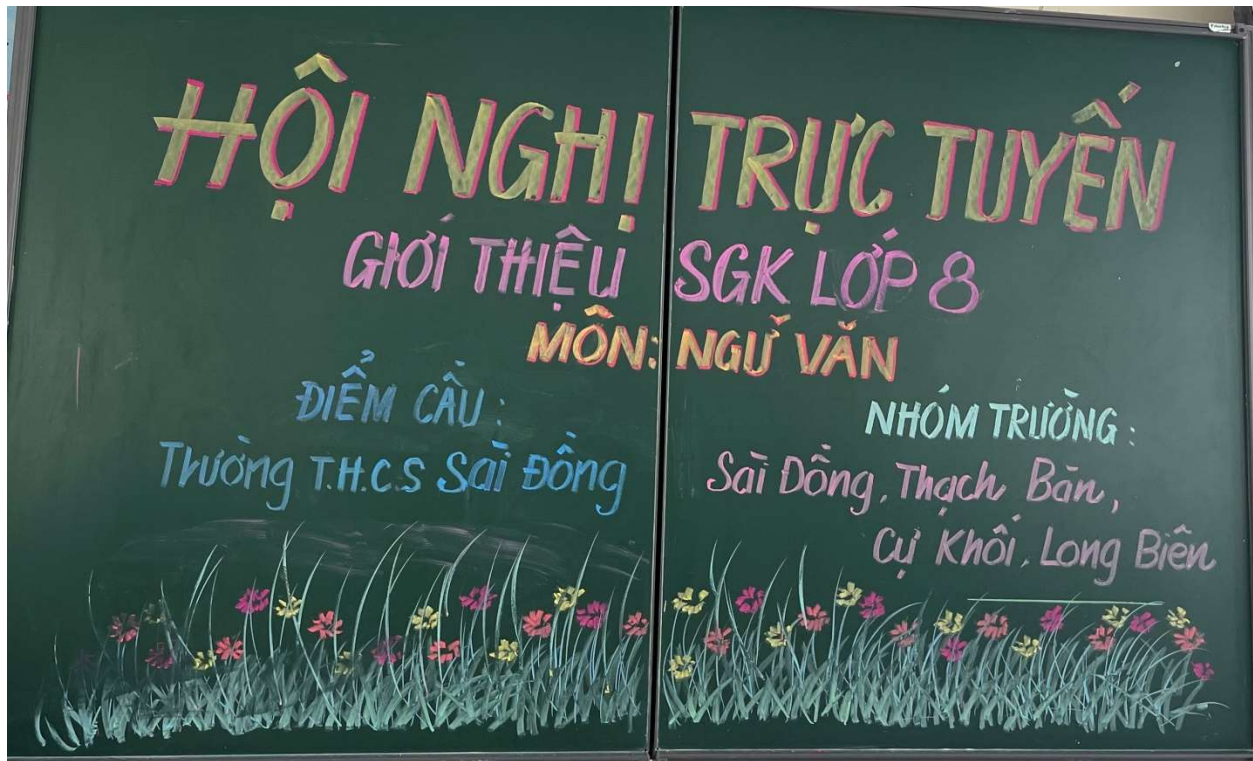 HỘI NGHỊ TRỰC TUYẾN
GIỚI THIỆU SGK LỚP 8
MÔN: NGỮ VĂN
ĐIỂM CẦU:
Trường T.H.C.S Sài Đồng
NHÓM TRƯỜNG:
Sài Đồng, Thạch Bàn,
Cự Khối, Long Biên